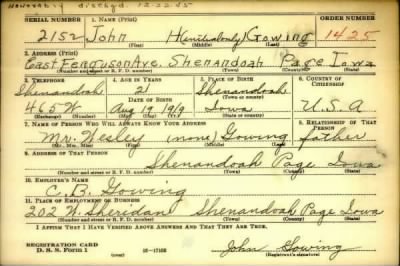 Honorably dischgd. 12-22-45
SERIAL NUMBER 1. NAME (Print) ORDER NUMBER
2152 John H(initial only) Gowing 1425
(First) (Middle) (Last)
2. ADDRESS (Print)
East Ferguson Ave. Shenandoah Page Iowa
(Number and street or R. F. D. number) (Town) (County) (State)
3. TELEPHONE 4. AGE IN YEARS 5. PLACE OF BIRTH 6. COUNTRY OF CITIZENSHIP
Shenandoah 21 Shenandoah
DATE OF BIRTH (Town or county)
465W Aug 19 1919 Iowa U.S.A
(Exchange) (Number) (Mo.) (Day) (Yr.) (State or country)
7. NAME OF PERSON WHO WILL ALWAYS KNOW YOUR ADDRESS 8. RELATIONSHIP OF THAT PERSON
Mr. Wesley (none) Gowing father
(Mr., Mrs., Miss) (First) (Middle) (Last)
9. ADDRESS OF THAT PERSON
Shenandoah Page Iowa
(Number and street or R. F. D. number) (Town) (County) (State)
10. EMPLOYER'S NAME
C. B. Gowing
11. PLACE OF EMPLOYMENT OR BUSINESS
202 W. Sheredan Shenandoah Page Iowa
(Number and street or R. F. D. number) (Town) (County) (State)
I AFFIRM THAT I HAVE VERIFIED ABOVE ANSWERS AND THAT THEY ARE TRUE.
REGISTRATION CARD
D. S. S. Form 1 John Gowing
(Registrant's signature)